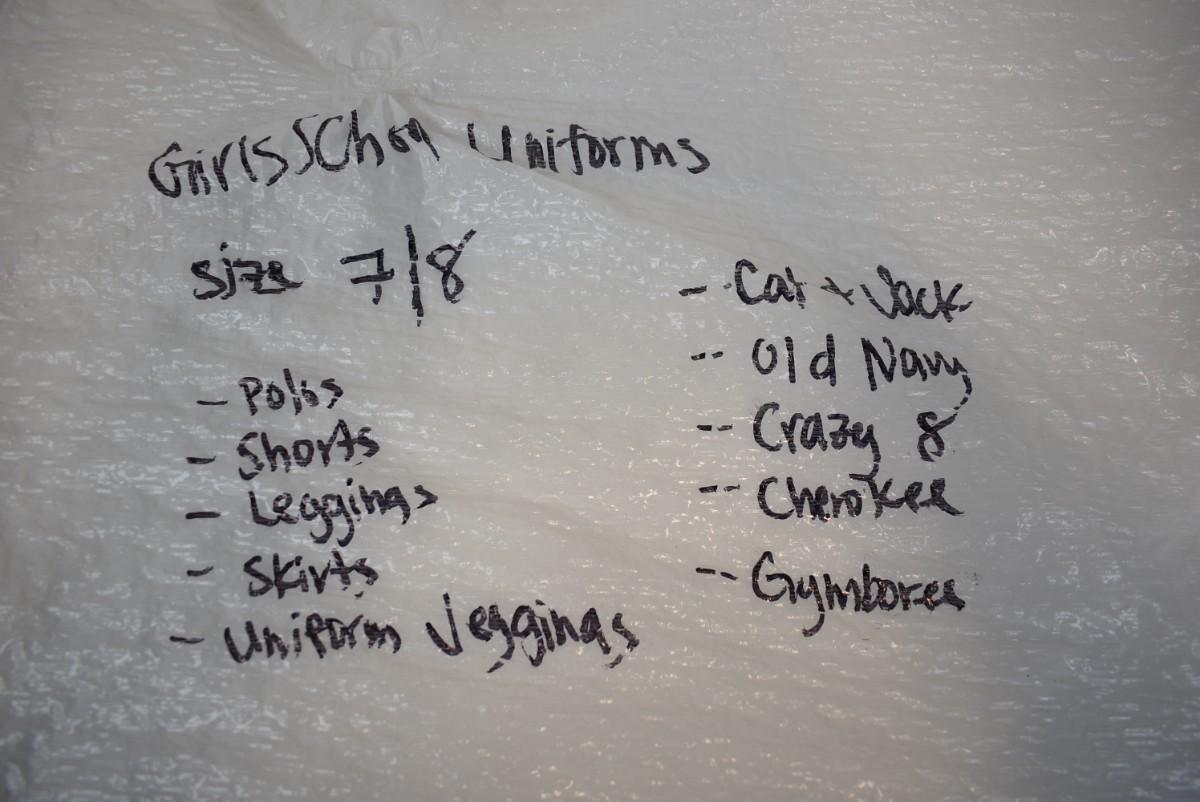 Girls School Uniforms
size 7/8
- Polos
- Shorts
- Leggings
- Skirts
- Uniform Jeggings
- Cat + Jack
-- Old Navy
-- Crazy 8
-- Cherokee
-- Gymboree